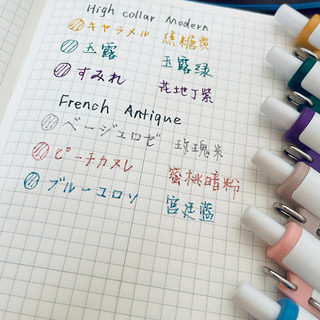 High collar Modern
キャラメル 焦糖黄
玉露 玉露绿
すみれ 花地丁紫
French Antique
ベージュロゼ 玫瑰米
ピーチカヌレ 蜜桃暗粉
ブルーユロソ 宫廷蓝